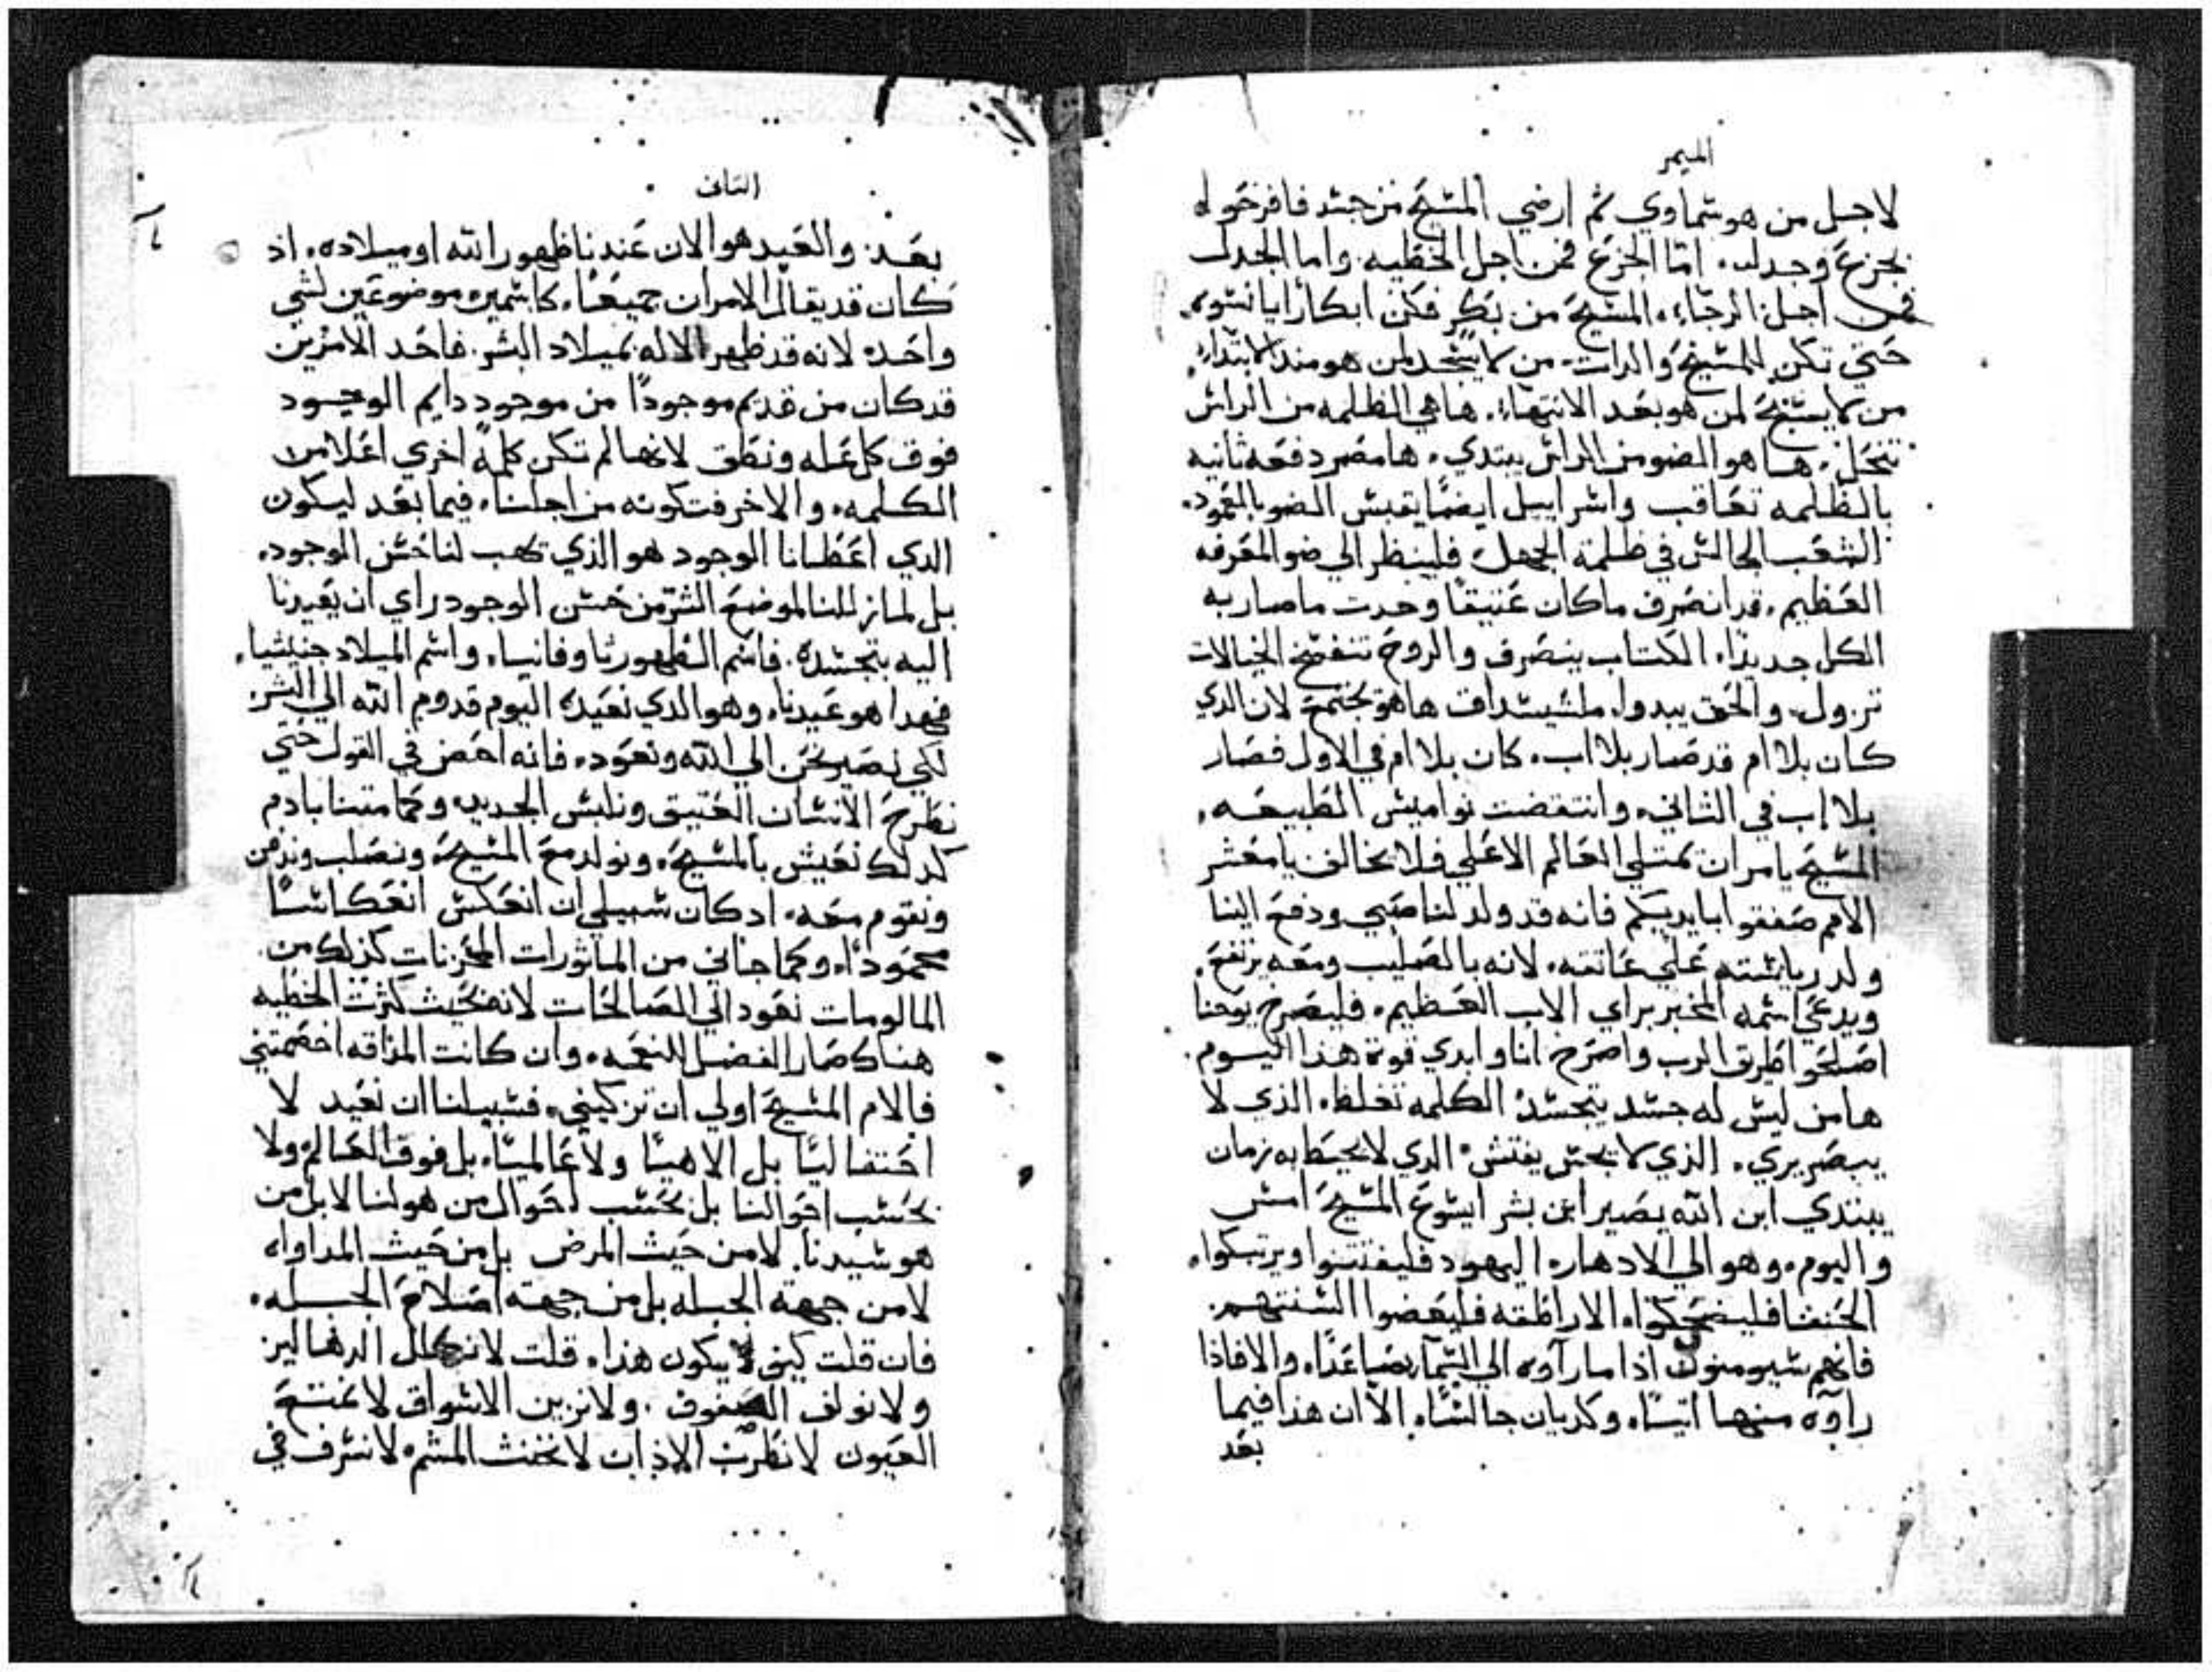 الميمر
لاجل من هو سماوي ثم ارضي المسيح من جسد فافرحوا له
بجزع وجدل، امّا الجزع فمن اجل الخطيه. واما الجدل
فمن اجل الرجاء، المسيح من بكر فكن ابكارًا يا نسوه،
حتي تكن للمسيح والدات، من لا يسجد لمن هو مند الابتداء،
من لا يسبح لمن هو بعد الانتهاء. ها هي الظلمه من الرائس
تنحل، ها هو الضو من الرائس يبتدي، ها مصر دفعه ثانيه
بالظلمه تعاقب واسراييل ايضًا يقبس الضو بالعمود.
الشعب الجالس في ظلمة الجهل فلينظر الي ضو المعرفه
العظيم، قد انصرف ما كان عتيقًا وحدت ما صار به
الكل جديدًا، الكتاب ينصرف والروح تتفتح الخيالات
تزول، والحق يبدوا، ملشيسداق ها هو يجتمع لان الدي
كان بلا ام قد صار بلا اب، كان بلا ام في الاول فصار
بلا اب في الثاني، وانتقضت نواميس الطبيعه،
المسيح يامر ان يمتلي العالم الاعلي فلا نخالف يا معشر
الامم صفقوا بايديكم فانه قد ولد لنا صبي ودفع الينا
ولد رياسته علي عاتقه، لانه بالصليب ومعه يرتفع،
ويدعي اسمه المخبر براي الاب العظيم، فليصرخ يوحنا
اصلحوا طريق الرب واصرخ انا وابدي قوة هذا اليوم.
ها من ليس له جسد يتجسد الكلمه تغلظ، الذي لا
يبصر يري، الذي لا يجس يفتش الدي لا يحيط به زمان
يبتدي ابن الله يصير ابن بشر ايسوع المسيح امس
واليوم، وهو الي الادهار، اليهود فليفتتنوا ويرتبكوا،
الحنفا فليضحكوا، الاراطقه فليعضوا السنتهم.
فانهم سيومنون اذا ما رآوه الي السمآ صاعدًا، والا فاذا
راوه منها اتيًا، وكديان جالسًا، الآ ان هذا فيما
بعد
الثاني
بعد: والعيد هو الان عندنا ظهور الله او ميلاده، اذ
كان قد يقال الامران جميعًا، كاسمين موضوعين لشي
واحد، لانه قد ظهر الاله بميلاد البشر. فاحد الامرين
قد كان من قديم موجودًا من موجود دايم الوجود
فوق كل عله ونطق لانها لم تكن كلمةً اخري اعلا من
الكلمه، والاخر فتكونه من اجلنا، فيما بعد ليكون
الدي اعطانا الوجود هو الذي يهب لنا حسن الوجود،
بل لما زللنا لموضع الشر من حسن الوجود راي ان يعيدنا
اليه بتجسده. فاسم الظهور ثاوفانيا، واسم الميلاد جنيثيا،
فهدا هو عيدنا، وهو الدي نعيده اليوم قدوم الله الي البشر.
لكي نصير نحن الي الله ونعود، فانه احض في القول حتي
نطرح الانسان العتيق ونلبس الجديد، وكما متنا بادم
كدلك نعيش بالمسيح، ونولد مع المسيح، ونصلب وندفن
ونقوم معه، اد كان سبيلي ان انعكس انعكاسًا
محمودًا، وكما جاني من الماثورات المحزنات كذلك من
المالومات نعود الي الصالحات لانه بحيث كثرت الخطيه
هناك صار الفضل للنعمه، وان كانت المذاقه اخصمتني
فالام المسيح اولي ان تزكيني، فسبيلنا ان نعيد لا
احتفاليًا بل الاهيًا ولا عالميًا، بل فوق العالم ولا
بحسب احوالنا بل بحسب احوال من هو لنا لا بل من
هو سيدنا. لا من حيث المرض بل من حيث المداواه
لا من جهة الجبله بل من جهة اصلاح الجبله،
فان قلت كيف يكون هذا، قلت لا نكلل الدهاليز
ولا نولف الصفوف. ولا نزين الاسواق لا نمتع
العيون لا نطرب الاذان لا نخنث المشم، لا نسرف في